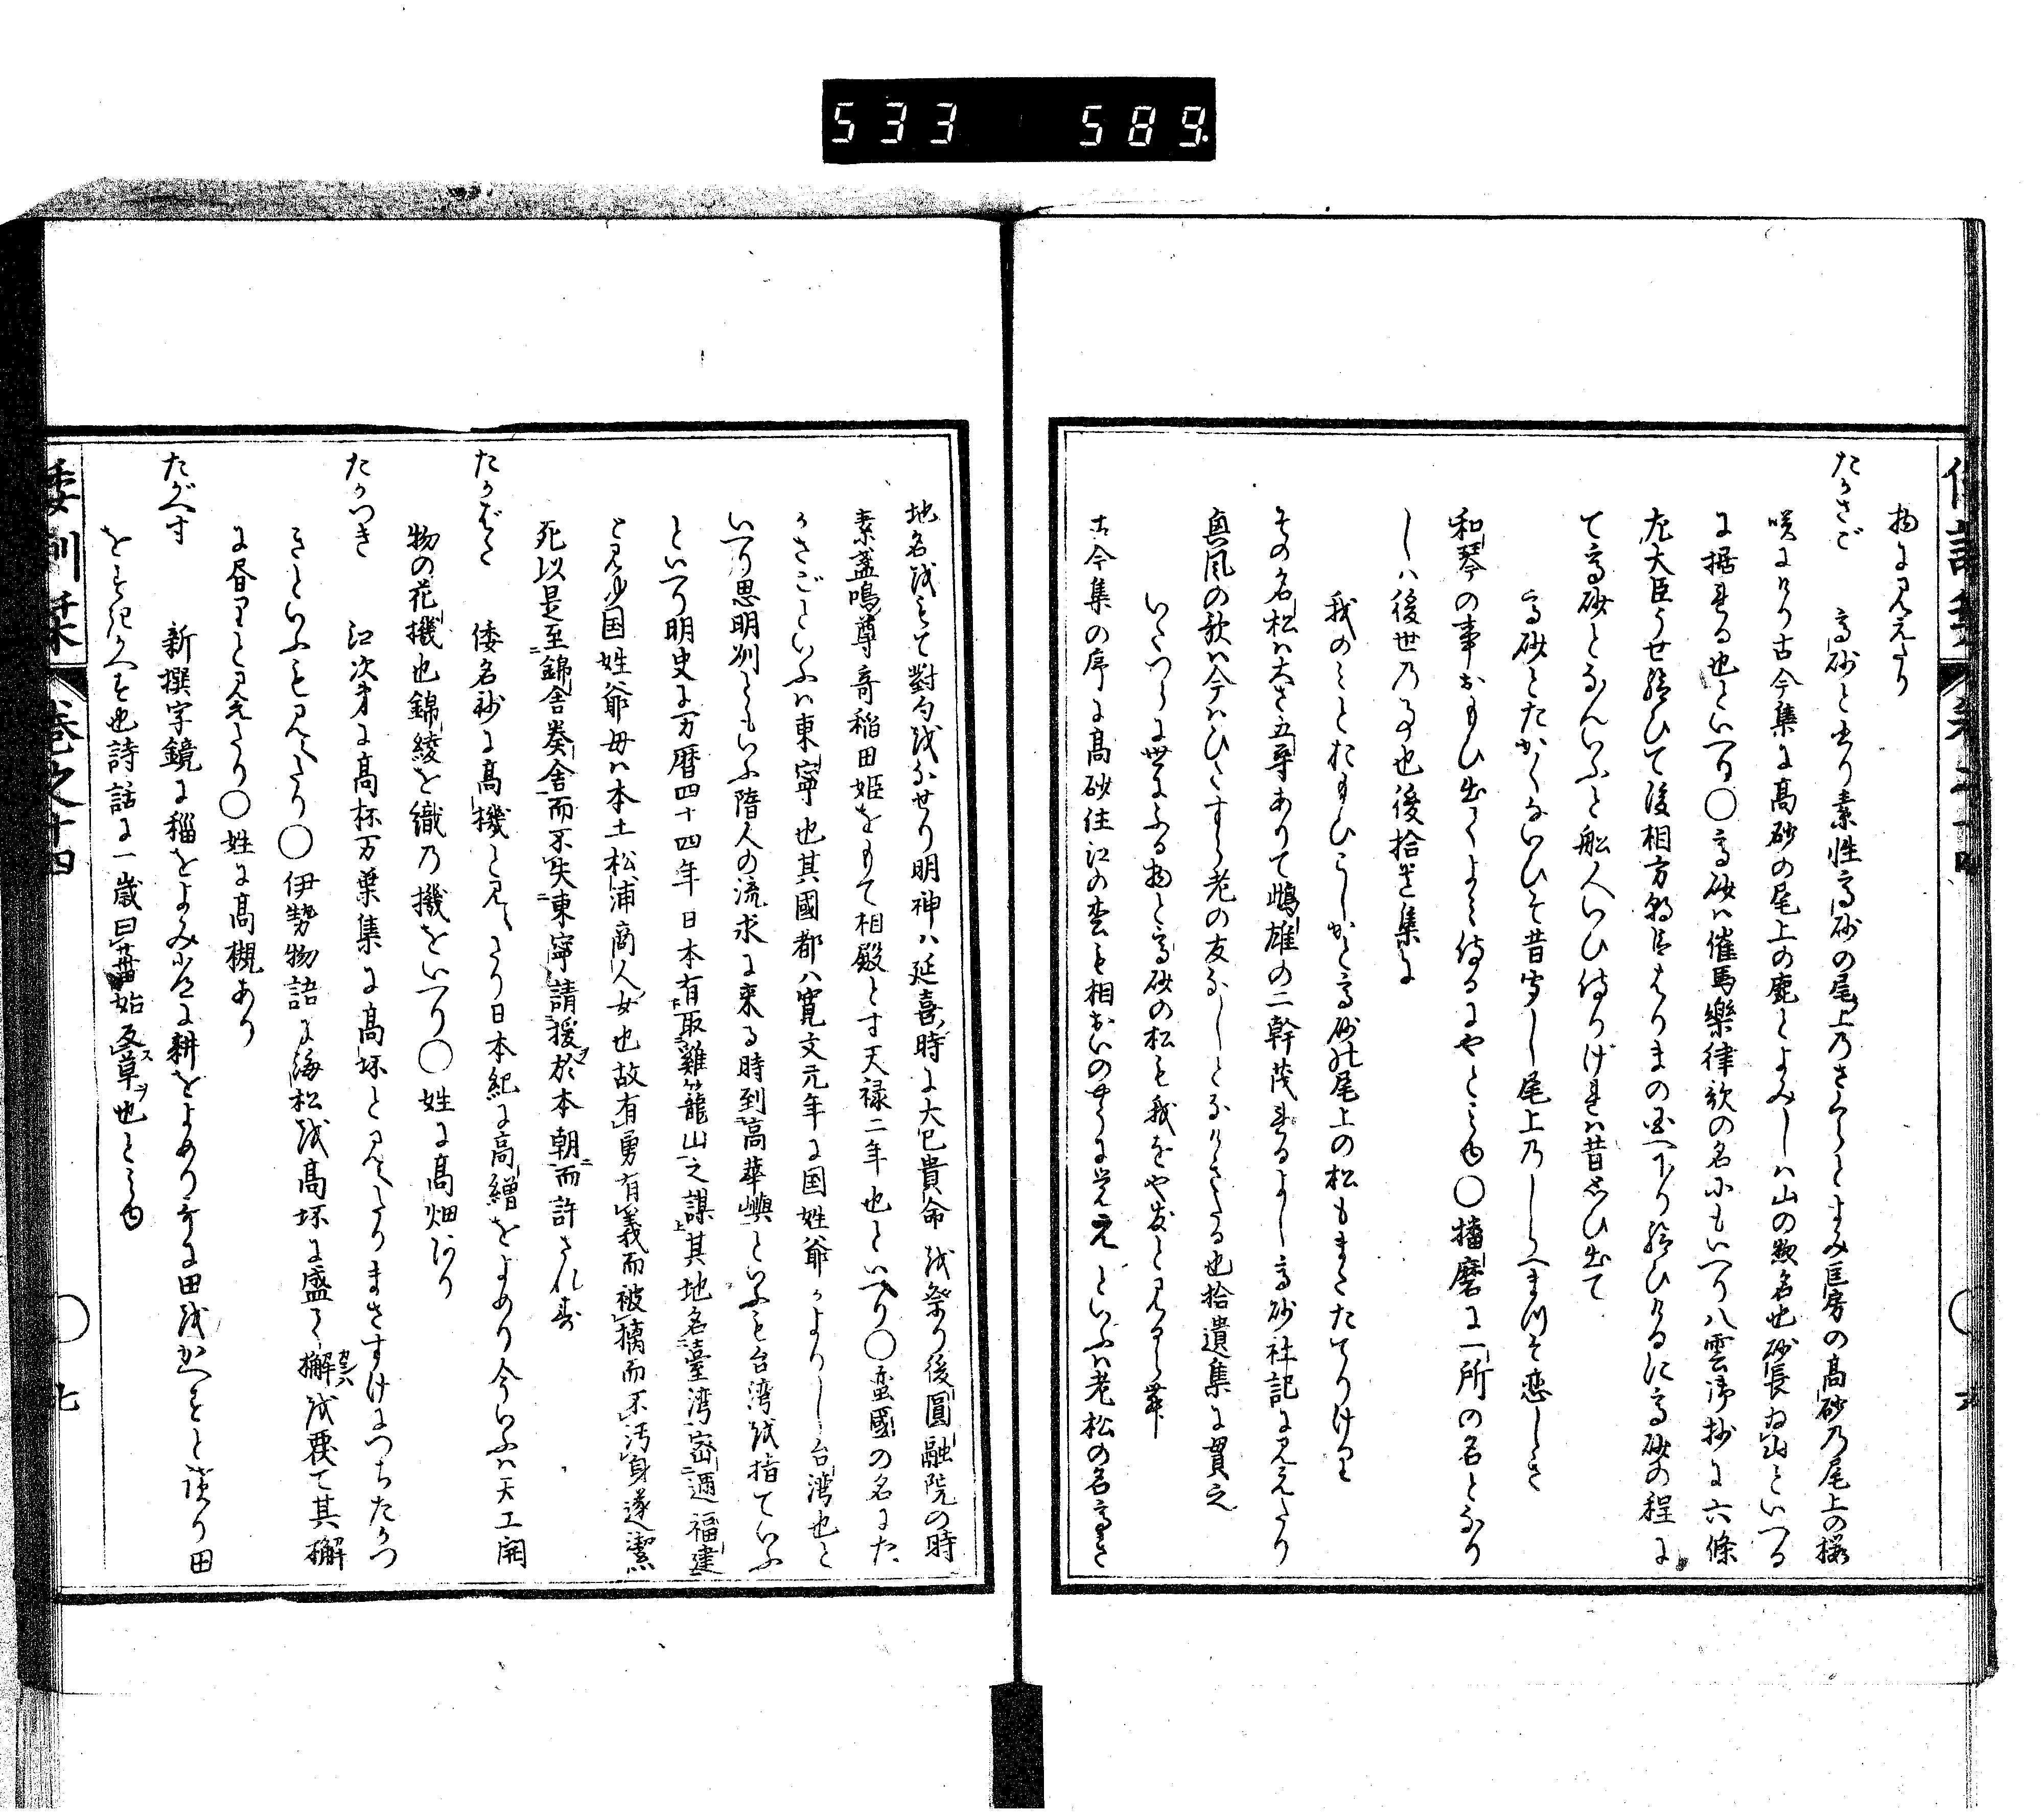 533 589
物に見えたり
たかさご 高砂と書り素性高砂の尾上乃さくらとよみ匡房の高砂乃尾上の桜
咲にけり古今集に高砂の尾上の鹿とよみしハ山の惣名也砂長為山といへる
に据れる也といへり〇高砂ハ催馬樂律歌の名にもいへり八雲御抄に六條
左大臣うせ給ひて後相方朝臣はりまの国へ下り給ひけるに高砂の程に
て高砂となんいふと船人いひ侍りけれハ昔思ひ出て
高砂とたかくないひそ昔きゝし尾上乃しらへまつそ恋しき
和琴の事おもひ出てよみ侍るにやとみゆ〇播磨に一所の名となり
しハ後世乃事也後拾遺集に
我のみとおもひこしかと高砂の尾上の松もまたたてりけり
その名松ハ大さ五尋ありて雌雄の二幹茂れるよし高砂社記に見えたり
興風の歌ハ今ハひたすら老の友なしとなけきたる也拾遺集に貫之
いたつらに世にふる物と高砂の松も我をや友と見るらむ
古今集の序に高砂住江の松も相おいのやうに覚え といふハ老松の名高き
倭訓栞 巻之十四 七
地名をもて對句をなせり明神ハ延喜時に大已貴命を祭り後圓融院の時
素盞嗚尊奇稲田姫をもて相殿とす天禄二年也といへり〇蛮國の名にた
かさごといふハ東寧也其國都ハ寛文元年に国姓爺かよりし台湾也と
いへり思明州ともいふ隋人の流求に来る時到高華嶼といふも台湾を指ていふ
といへり明史に万暦四十四年日本有取雞籠山之謀其地名臺湾密邇福建
と見ゆ国姓爺母ハ本土松浦商人女也故有勇有義而被擒而不汚身遂潔
死以是至錦舎奏舎而不失東寧請援於本朝而許されす
たかばた 倭名抄に高機と見えたり日本紀に高繒をよめり今いふハ天工開
物の花機也錦綾を織乃機をいへり〇姓に高畑あり
たかつき 江次第に高杯万葉集に高坏と見えたりまさすけにつちたかつ
きといふも見えたり〇伊勢物語に海松を高坏に盛て檞を覆て其檞
に書りと見えたり〇姓に高槻あり
たがへす 新撰字鏡に穪をよみ小石に耕をよめり哥に田をかへすと讀り田
をすきかへす也詩話に一歳曰葘始反草也とみゆ